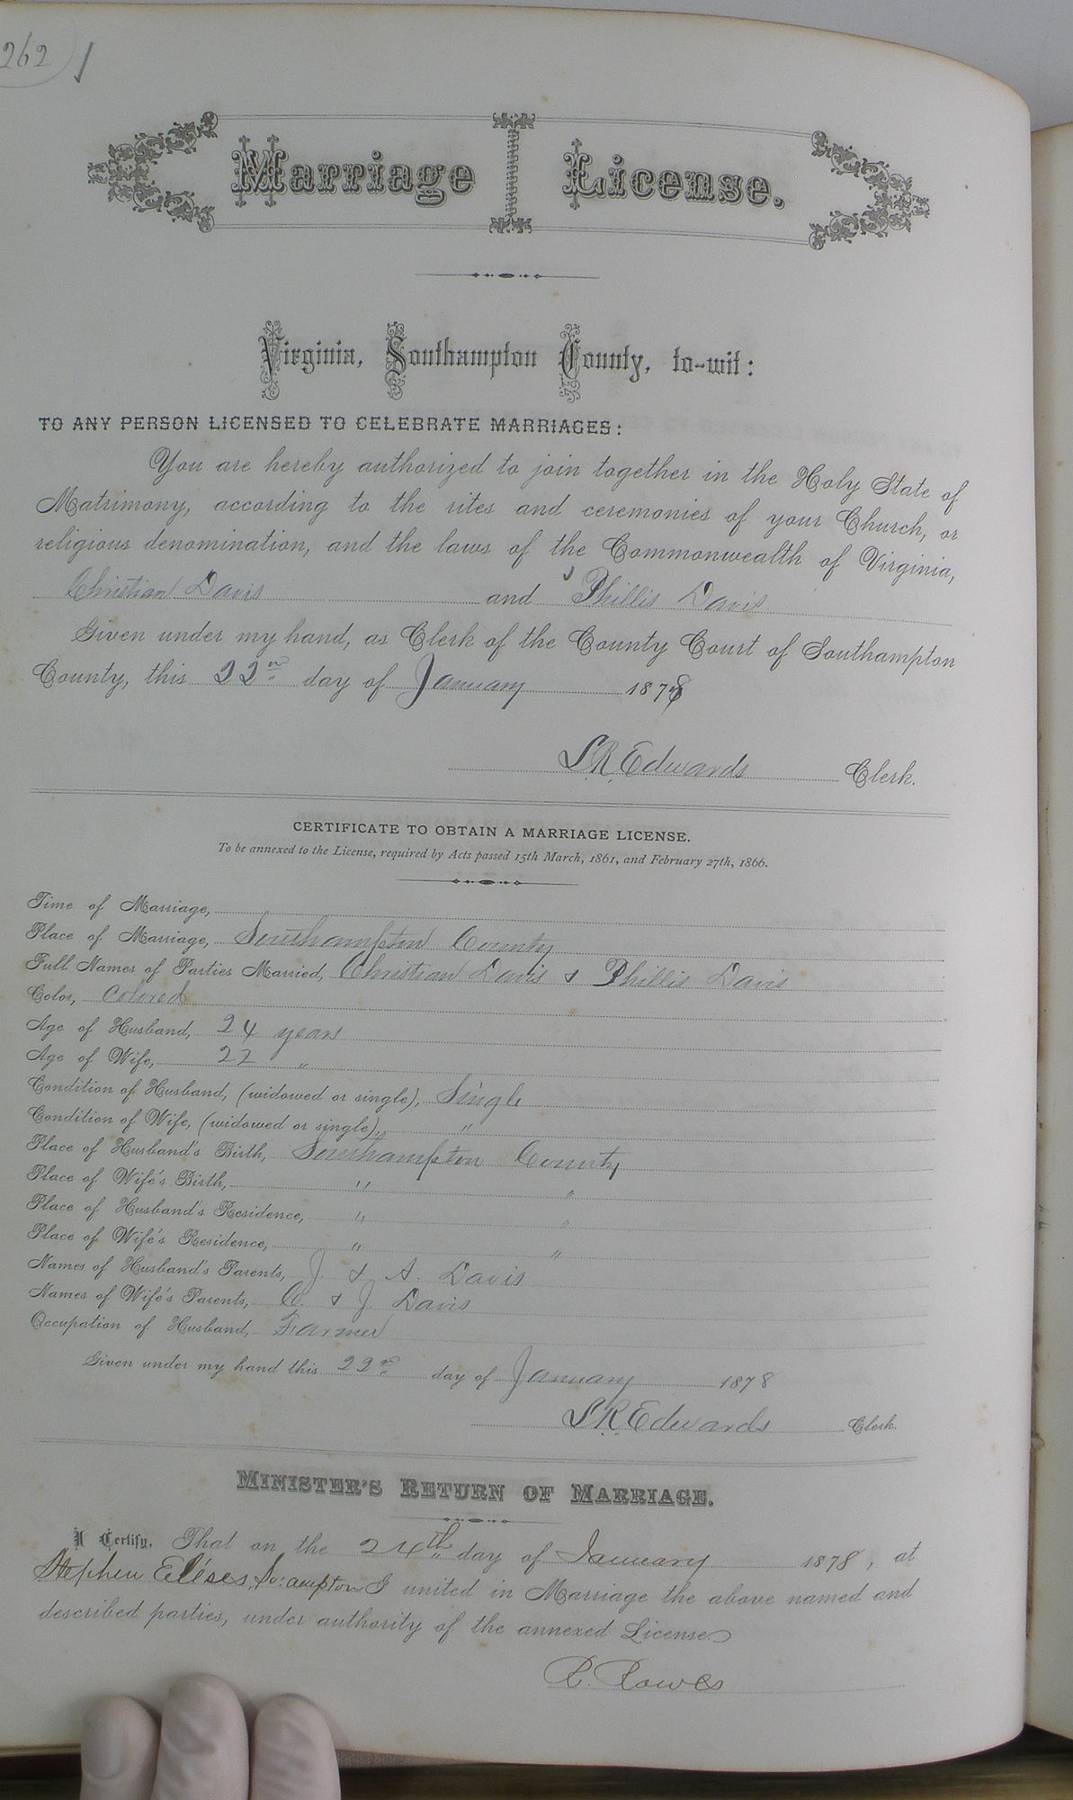 262
Marriage License.
Virginia, Southampton County, to-wit:
TO ANY PERSON LICENSED TO CELEBRATE MARRIAGES:
You are hereby authorized to join together in the Holy State of
Matrimony, according to the rites and ceremonies of your Church, or
religious denomination, and the laws of the Commonwealth of Virginia,
Christian Davis and Phillis Davis
Given under my hand, as Clerk of the County Court of Southampton
County, this 22nd day of January 1878
L.R. Edwards Clerk.
CERTIFICATE TO OBTAIN A MARRIAGE LICENSE.
To be annexed to the License, required by Acts passed 15th March, 1861, and February 27th, 1866.
Time of Marriage,
Place of Marriage, Southampton County
Full Names of Parties Married, Christian Davis & Phillis Davis
Color, Colored
Age of Husband, 24 years
Age of Wife, 22 "
Condition of Husband, (widowed or single), Single
Condition of Wife, (widowed or single), "
Place of Husband's Birth, Southampton County
Place of Wife's Birth, " "
Place of Husband's Residence, " "
Place of Wife's Residence, " "
Names of Husband's Parents, J. & A. Davis
Names of Wife's Parents, & J. Davis
Occupation of Husband, Farmer
Given under my hand this 22nd day of January 1878
L.R. Edwards Clerk.
MINISTER'S RETURN OF MARRIAGE.
I Certify, That on the 24th day of January 1878, at
Stephen So:ampton I united in Marriage the above named and
described parties, under authority of the annexed License
R. Rowes